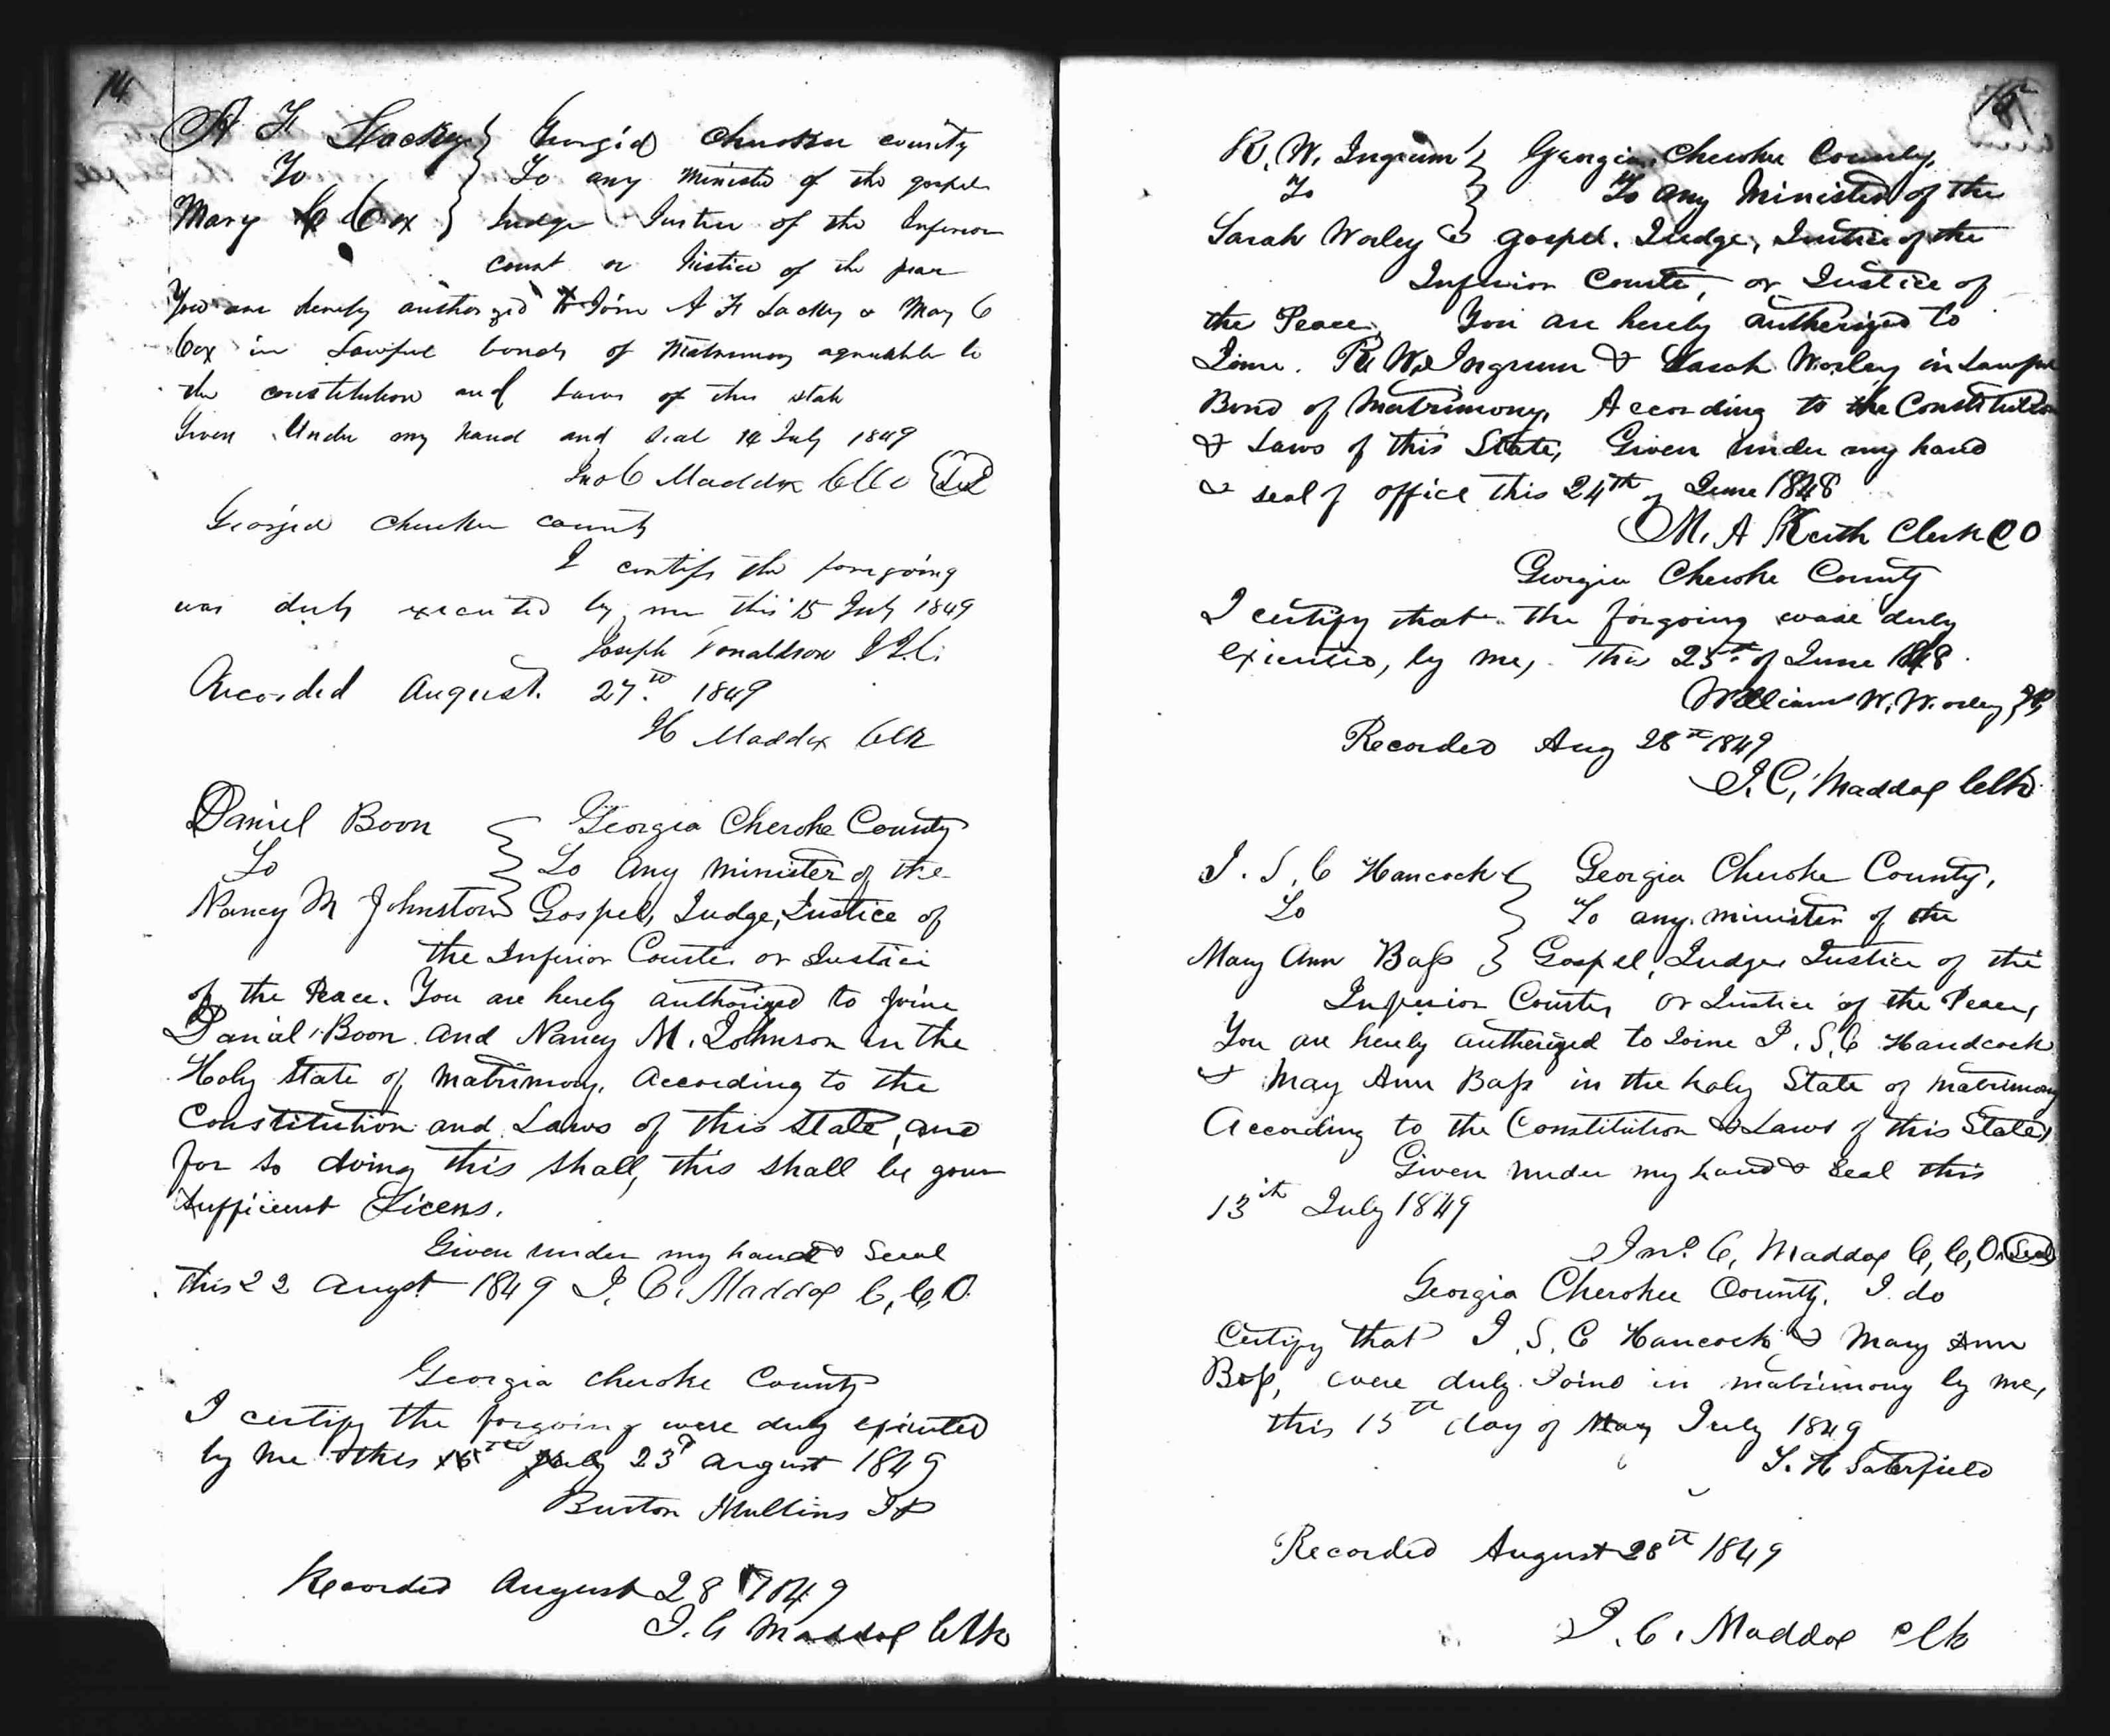 14
A F Lackey } Georgia Cherokee county
To } To any Minister of the gospel
Mary C Cox } Judge Justice of the Inferior
court or Justice of the peace
You are hereby authorized to Join A F Lackey & Mary C
Cox in Lawful bonds of Matrimony agreeable to
the constitution and Laws of this state
Given Under my hand and Seal 14 July 1849
Jno C Maddox CCO
Georgia Cherokee county
I certify the foregoing
was duly executed by me this 15 July 1849
Joseph Donaldson
Recorded August 27th 1849
Maddox Clk
Daniel Boon } Georgia Cheroke County
To } To any minister of the
Nancy M Johnston } Gospel, Judge, Justice of
the Inferior Courte or Justice
of the Peace. You are herely authorized to joine
Danial Boon and Nancy M. Johnson in the
Holy State of Matrimony. According to the
Constitution and Laws of this State, and
for so doing this shall, this shall be your
sufficient Licens.
Given under my hand & Seal
this 22 Augst 1849 J. C. Maddox C, C, O.
Georgia cheroke County
I certify the forgoing were duly executed
by me this 15th July 23d August 1849
Burton Mullins JP
Recorded August 28 1849
J. C Maddox Clk
15
R. W. Ingrum } Georgia, Cheroke County,
To } To any Minister of the
Sarah Worley } Gospel. Judge, Justice of the
Inferior Courte, or Justice of
the Peace, You are hereby autherized to
Joine. R W, Ingrum & Sarah Worley in Lawful
Bond of Matrimony, According to the Constitution
& Laws of this State, Given under my hand
& seal of office this 24th of June 1848
M. A Keith Clerk CO
Georgia Cheroke County
I certify that the forgoing wase duly
executed, by me, this 25th of June 1848
William W. Worley JP,
Recorded Aug 28th 1849
J. C, Maddox Clk
J. S. C Hancock } Georgia Cheroke County,
To } To any minister of the
Mary Ann Bass } Gospel, Judge Justice of the
Inferior Courte, or Justice of the Peace,
You are hereby autherized to Joine J. S, C Handcock
& Mary Ann Bass in the holy State of matrimony
According to the Constitution & Laws of this State,
Given under my hand & Seal this
13th July 1849
Jno. C, Maddox C, C, O. Seal
Georgia Cherokee County. I do
Certify that J. S, C Hancock & Mary Ann
Bass, were duly Joind in matrimony by me,
this 15th day of May July 1849
Saterfield
Recorded August 28th 1849
J. C. Maddox clk